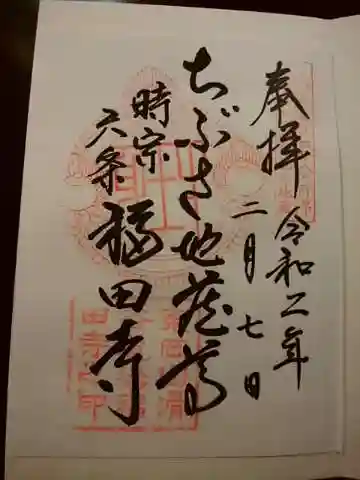 奉拝
令和二年
二月七日
ちぶさ地蔵尊
時宗
六条
福田寺